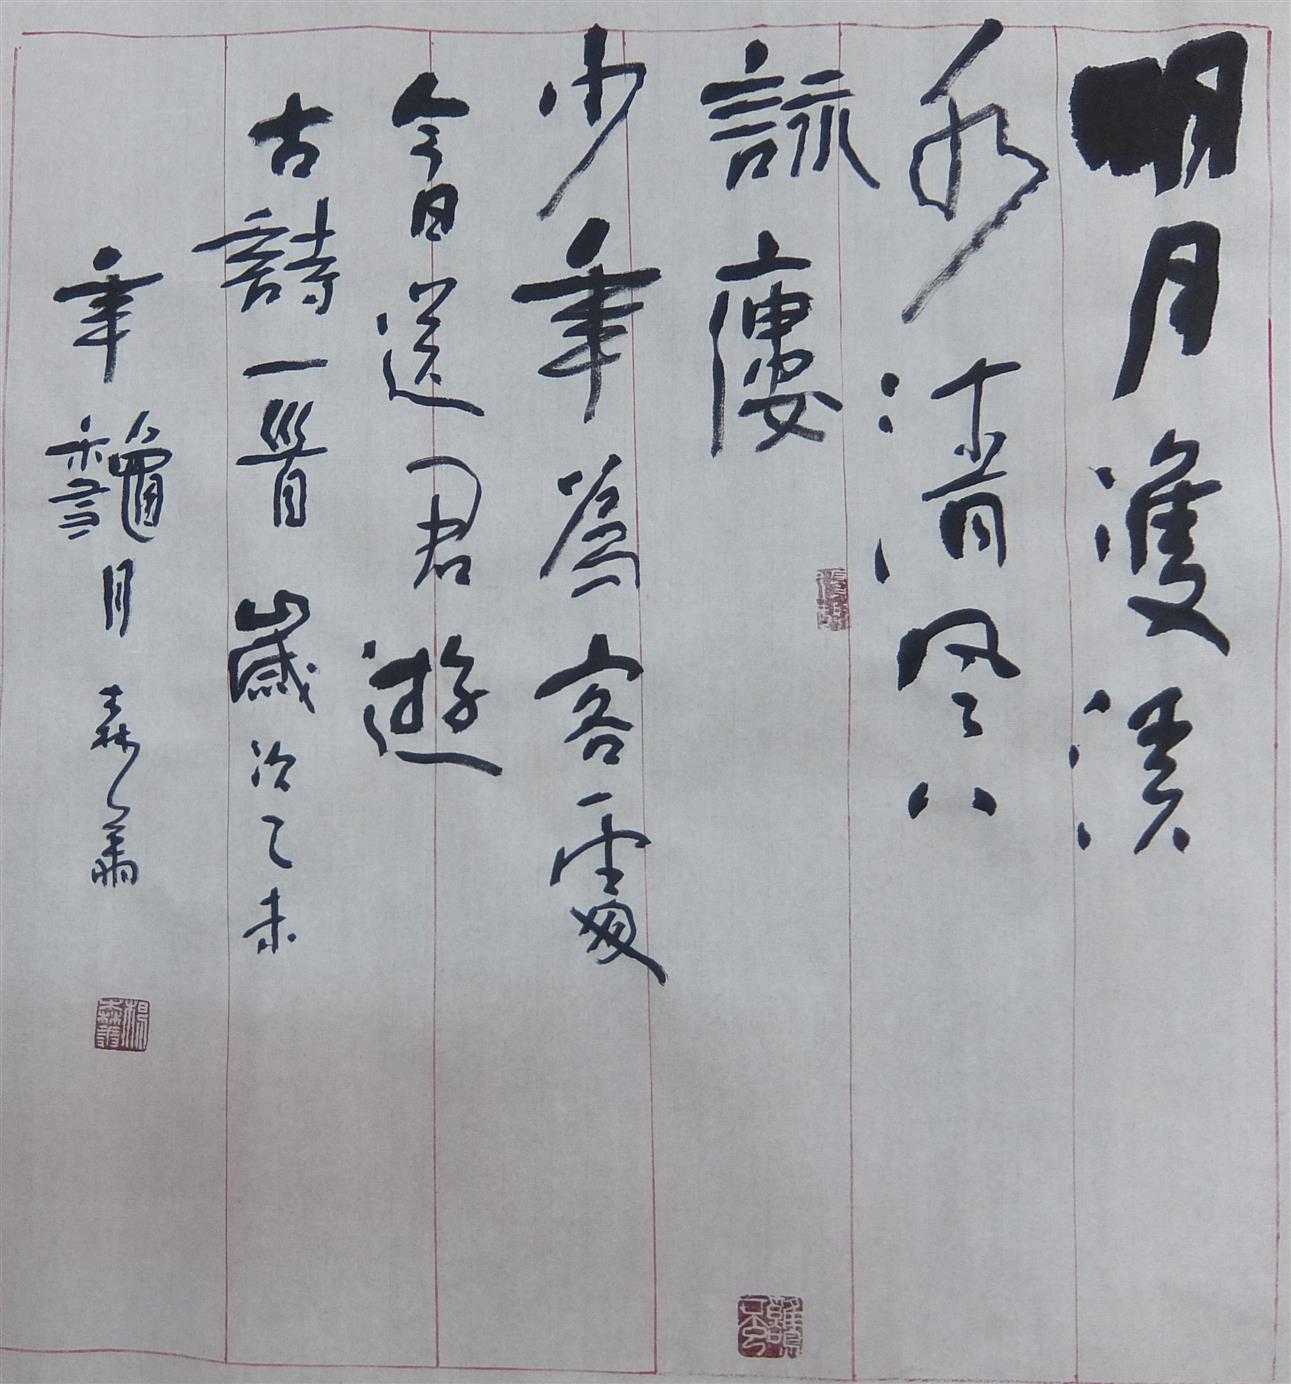 明月雙溪
水清風八
詠廔
少年爲客處
今日送君遊
古詩一首 歲次乙未
年龝月 森